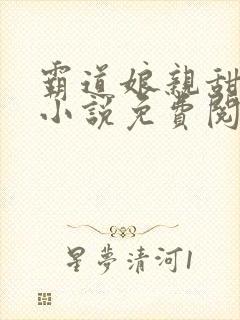 霸道娘親甜
小說免費閱
星夢清河1